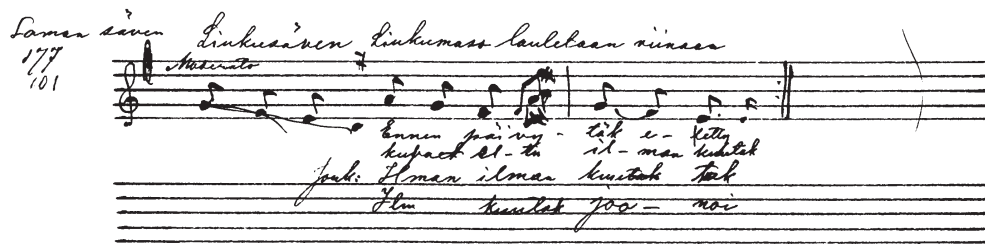 Saman säven
177
101
Liukusäven Liukumass lauletaan
Moderato
Ennen päivy-täk e-letty
kuvaek el-tu il-man kuutak
Jouk: Ilman ilman kuutak tak
Ilm kuutak joo- noi